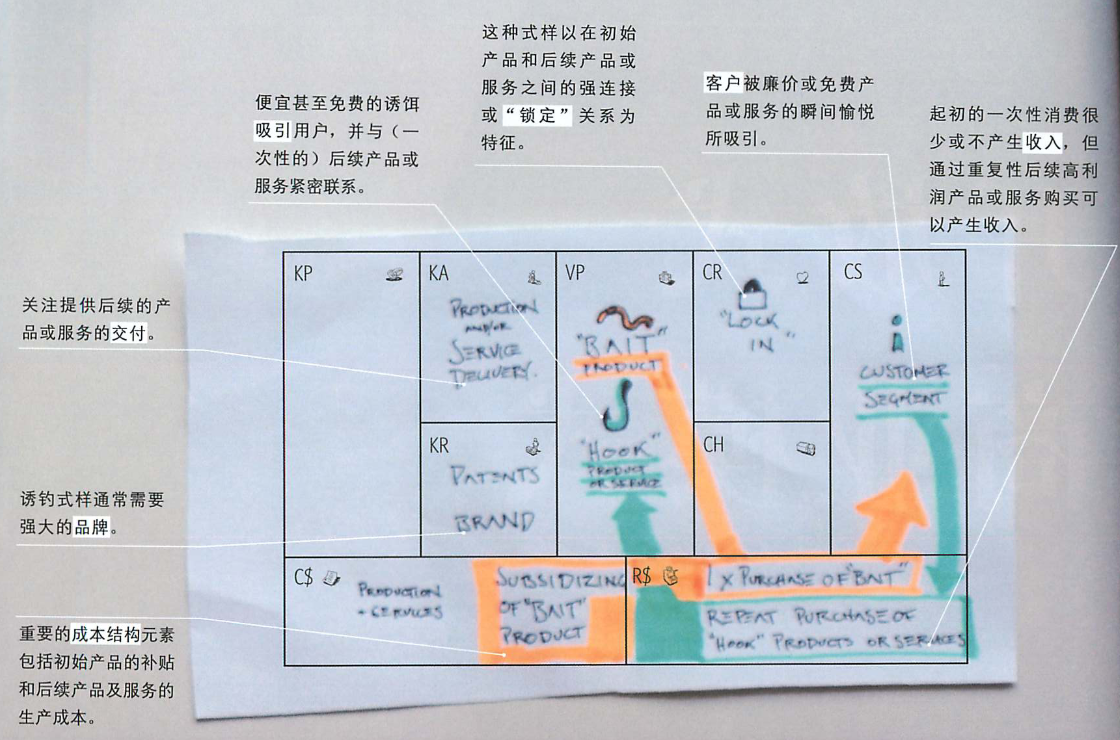 这种式样以在初始
产品和后续产品或
服务之间的强连接
或“锁定”关系为
特征。
便宜甚至免费的诱饵
吸引用户，并与（一
次性的）后续产品或
服务紧密联系。
客户被廉价或免费产
品或服务的瞬间愉悦
所吸引。
起初的一次性消费很
少或不产生收入，但
通过重复性后续高利
润产品或服务购买可
以产生收入。
关注提供后续的产
品或服务的交付。
诱钓式样通常需要
强大的品牌。
重要的成本结构元素
包括初始产品的补贴
和后续产品及服务的
生产成本。
KP
KA
PRODUCTION
AND/OR
SERVICE
DELIVERY.
KR
PATENTS
BRAND
VP
"BAIT"
PRODUCT
"HOOK"
PRODUCT
OR SERVICE
CR
"LOCK
IN"
CH
CS
CUSTOMER
SEGMENT
C$
PRODUCTION
+ SERVICES
SUBSIDIZING
OF "BAIT"
PRODUCT
R$
1 x PURCHASE OF "BAIT"
REPEAT PURCHASE OF
"HOOK" PRODUCTS OR SERVICES